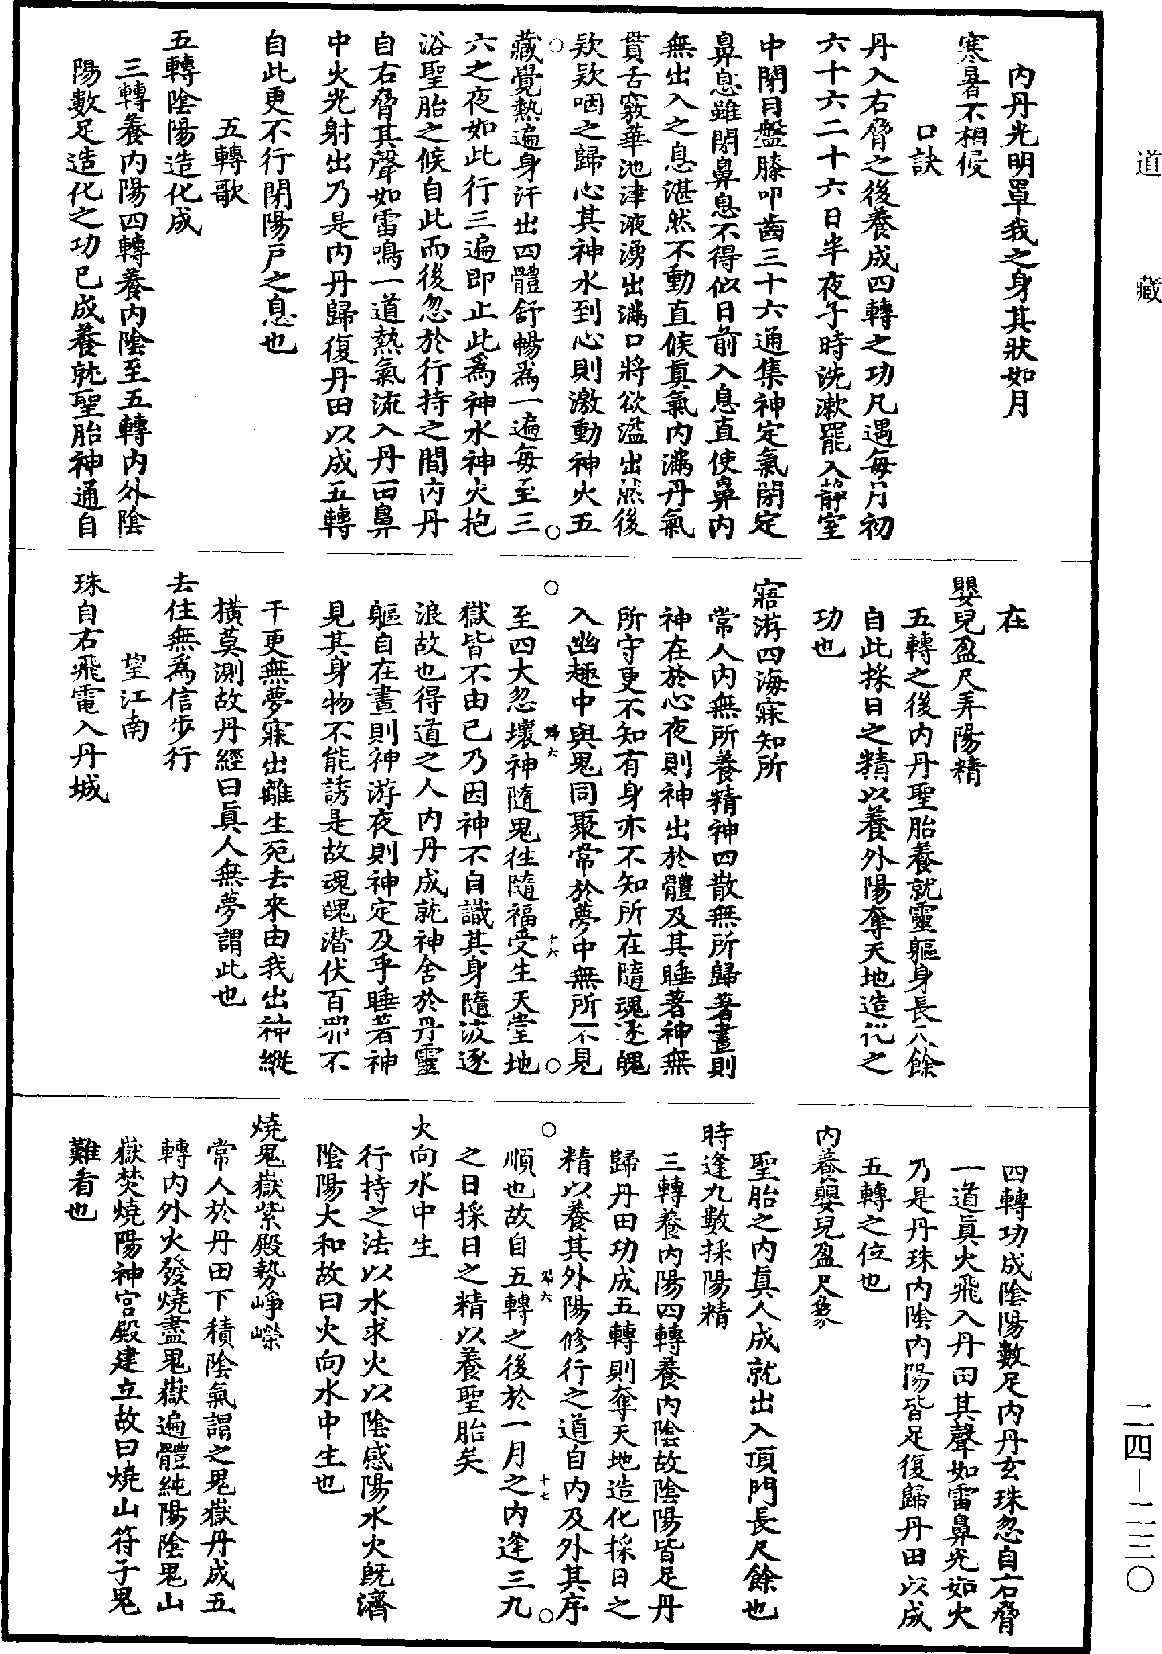 道藏
內丹光明罩我之身其狀如月
寒暑不相侵
口訣
丹入右脅之後養成四轉之功凡遇每月初
六十六二十六日半夜子時洗漱罷入靜室
中閉目盤膝叩齒三十六通集神定氣閉定
鼻息雖閉鼻息不得似日前入息直使鼻內
無出入之息湛然不動直候真氣內滿丹氣
貫舌竅華池津液湧出滿口將欲溢出然後
欻欻咽之歸心其神水到心則激動神火五
藏覺熱遍身汗出四體舒暢為一遍每至三
六之夜如此行三遍即止此為神水神火抱
浴聖胎之候自此而後忽於行持之間內丹
自右脅其聲如雷鳴一道熱氣流入丹田鼻
中火光射出乃是內丹歸復丹田以成五轉
自此更不行閉陽戶之息也
五轉歌
五轉陰陽造化成
三轉養內陽四轉養內陰至五轉內外陰
陽數足造化之功已成養就聖胎神通自
在
嬰兒盈尺弄陽精
五轉之後內丹聖胎養就靈軀身長尺餘
自此採日之精以養外陽奪天地造化之
功也
寤游四海寐知所
常人內無所養精神四散無所歸著晝則
神在於心夜則神出於體及其睡著神無
所守更不知有身亦不知所在隨魂逐魄
入幽趣中與鬼同聚常於夢中無所不見
至四大忽壞神隨鬼往隨福受生天堂地
獄皆不由已乃因神不自識其身隨波逐
浪故也得道之人內丹成就神舍於丹靈
軀自在晝則神游夜則神定及乎睡著神
見其身物不能誘是故魂魄潛伏百邪不
干更無夢寐出離生死去來由我出神縱
橫莫測故丹經曰真人無夢謂此也
去住無為信步行
望江南
珠自右飛電入丹城
四轉功成陰陽數足內丹玄珠忽自右脅
一道真火飛入丹田其聲如雷鼻光如火
乃是丹珠內陰內陽皆足復歸丹田以成
五轉之位也
內養嬰兒盈尺餘
聖胎之內真人成就出入頂門長尺餘也
時逢九數採陽精
三轉養內陽四轉養內陰故陰陽皆足丹
歸丹田功成五轉則奪天地造化採日之
精以養其外陽修行之道自內及外其序
順也故自五轉之後於一月之內逢三九
之日採日之精以養聖胎矣
火向水中生
行持之法以水求火以陰感陽水火既濟
陰陽大和故曰火向水中生也
燒鬼嶽紫殿勢崢嶸
常人於丹田下積陰氣謂之鬼嶽丹成五
轉內外火發燒盡鬼嶽遍體純陽陰鬼山
嶽焚燒陽神宮殿建立故曰燒山符子鬼
難看也
二四—二三〇